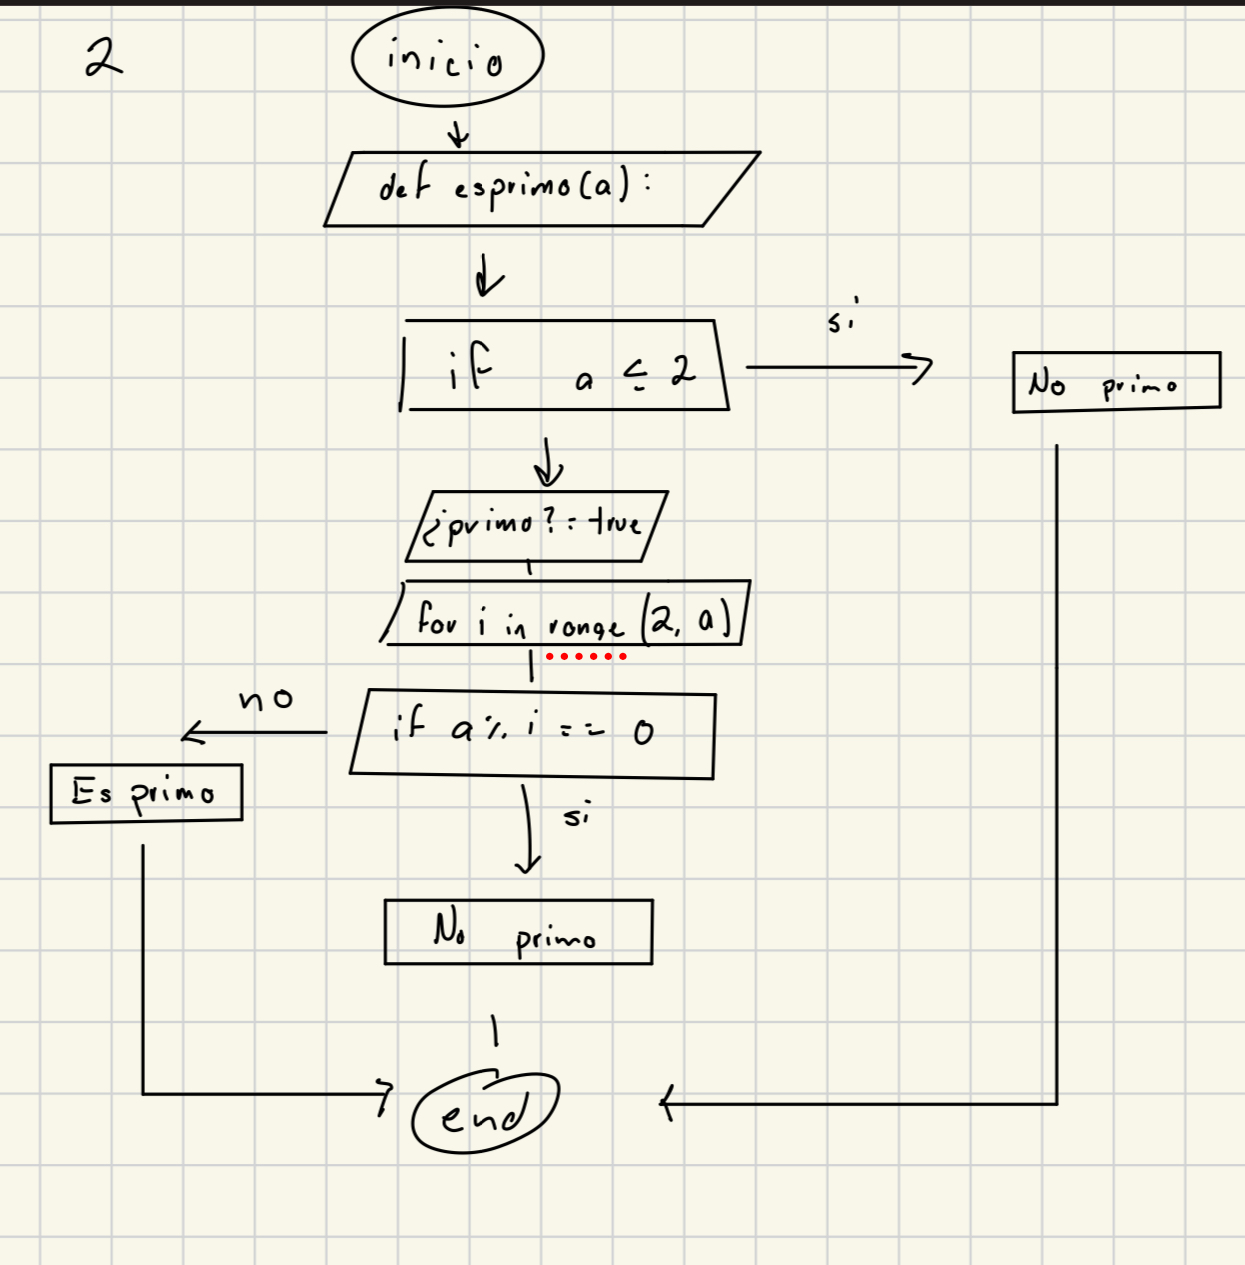 2
inicio
def esprimo(a):
if a ≤ 2
si
No primo
¿primo? = true
for i in range (2, a)
no
if a % i == 0
Es primo
si
No primo
end